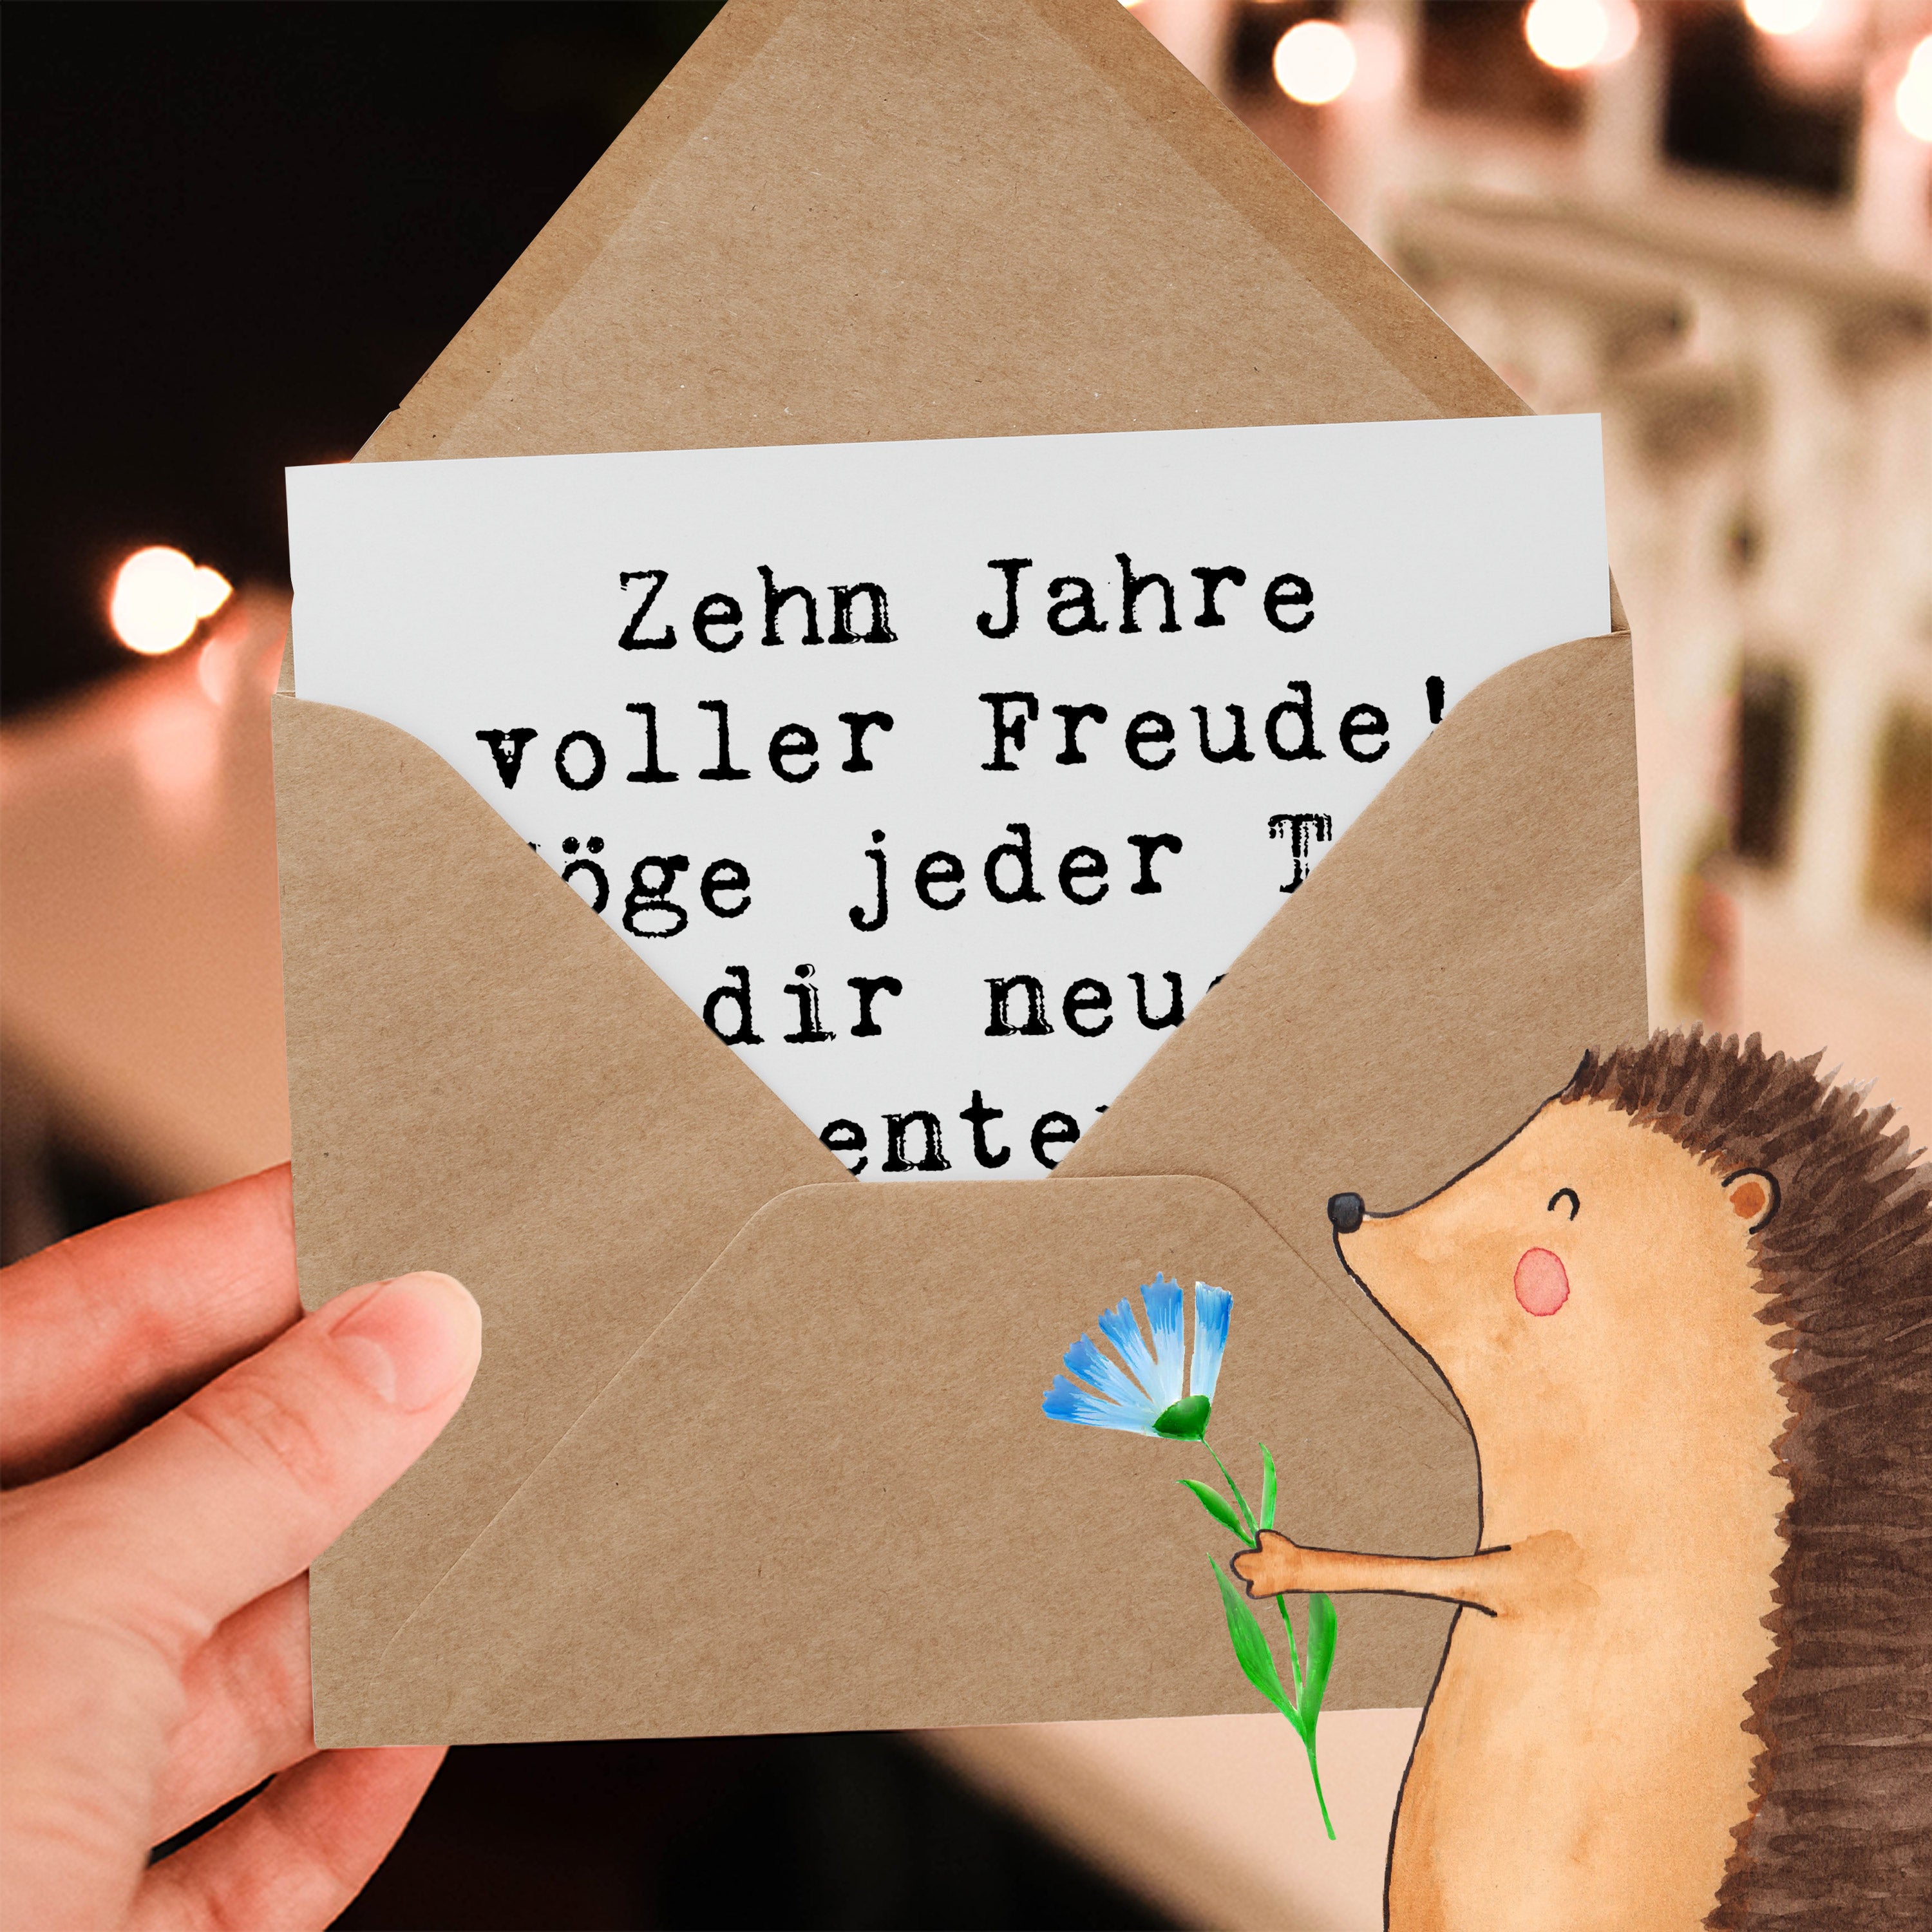 Zehn Jahre
voller Freude!
öge jeder T
dir neue
ente